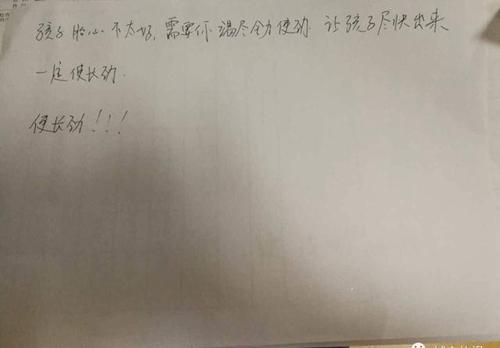 孩子胎心不太好,需要你竭尽全力使劲 让孩子尽快出来
一定使长劲.
使长劲!!!